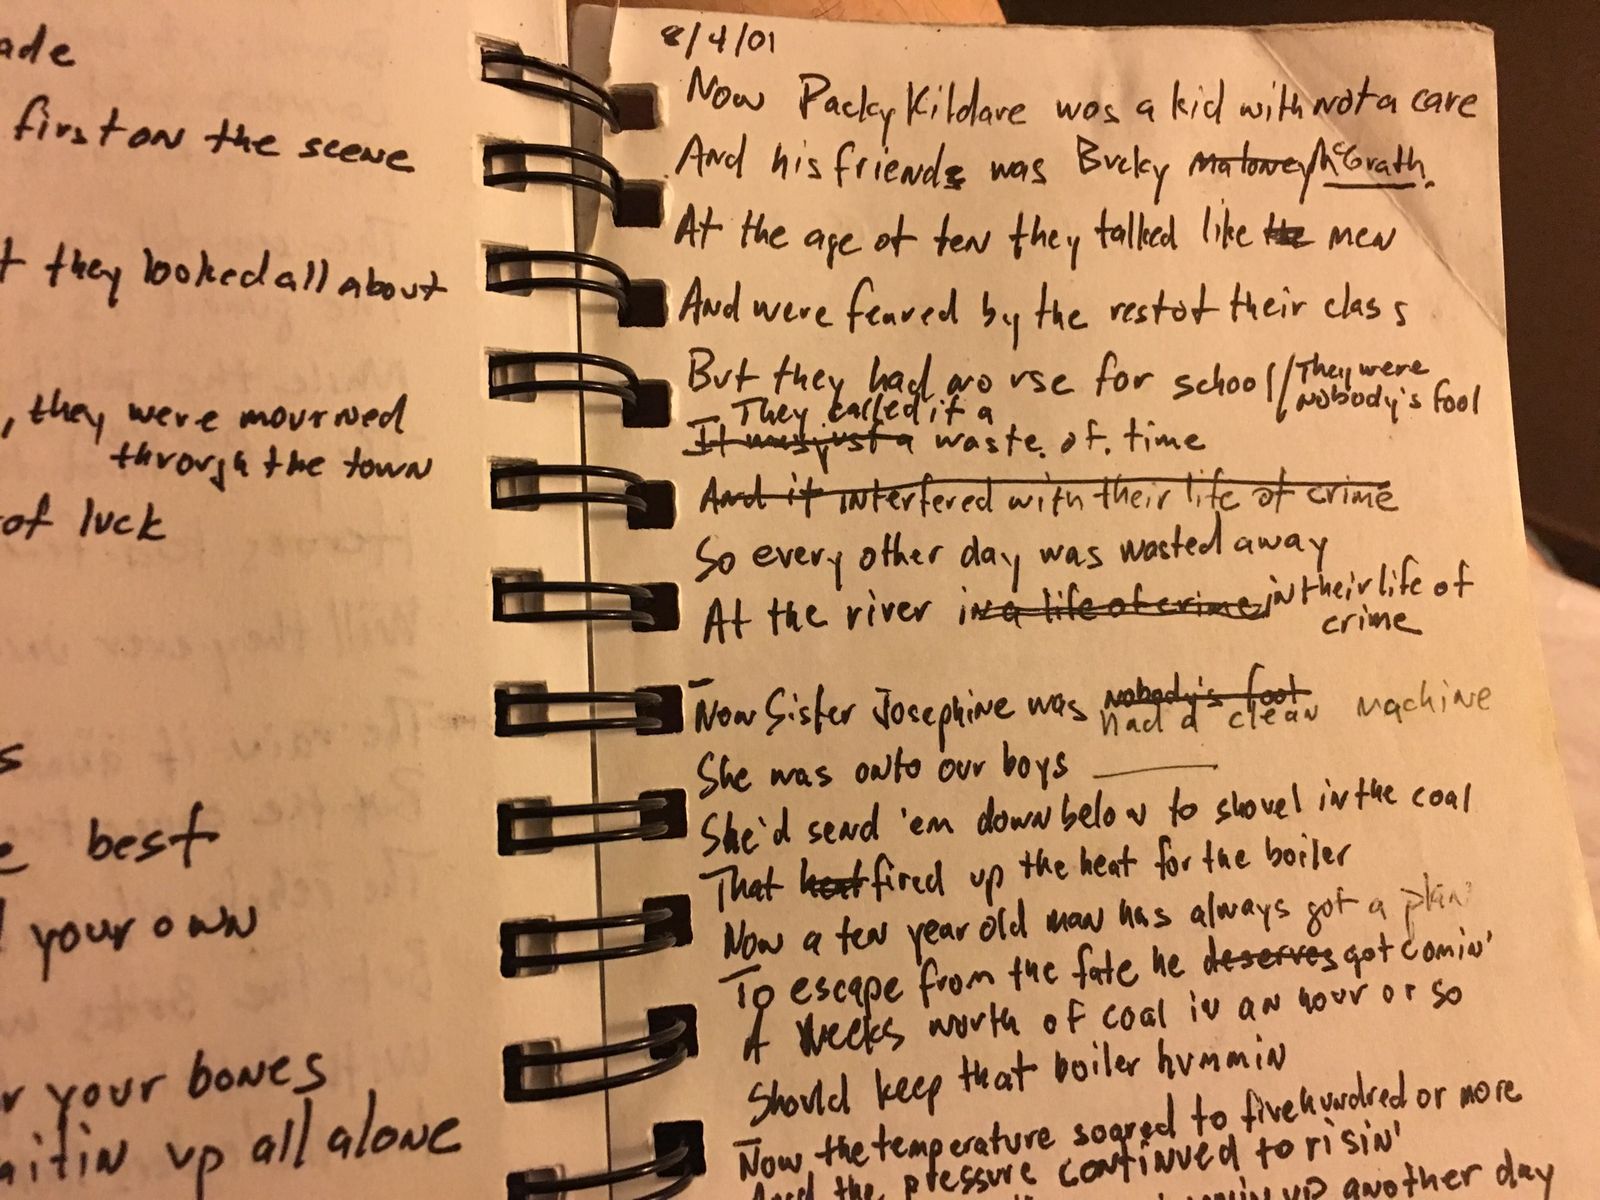 ade
first on the scene
they looked all about
, they were mourned
through the town
of luck
s
best
your own
your bones
up all alone
8/4/01
Now Packy Kildare was a kid with not a care
And his friends was Bucky Maloney/McGrath.
At the age of ten they talked like the men
And were feared by the rest of their class
But they had no use for school/They were
nobody's fool
They called it a
It was just a waste. of. time
And it interfered with their life of crime
So every other day was wasted away
At the river in a life of crime in their life of
crime
Now Sister Josephine was nobody's fool
had a clean machine
She was onto our boys ______
She'd send 'em down below to shovel in the coal
That heat fired up the heat for the boiler
Now a ten year old man has always got a plan
To escape from the fate he deserves got comin'
A Weeks worth of coal in an hour or so
Should keep that boiler hummin
Now the temperature soared to five hundred or more
And the pressure continued to risin'
up another day